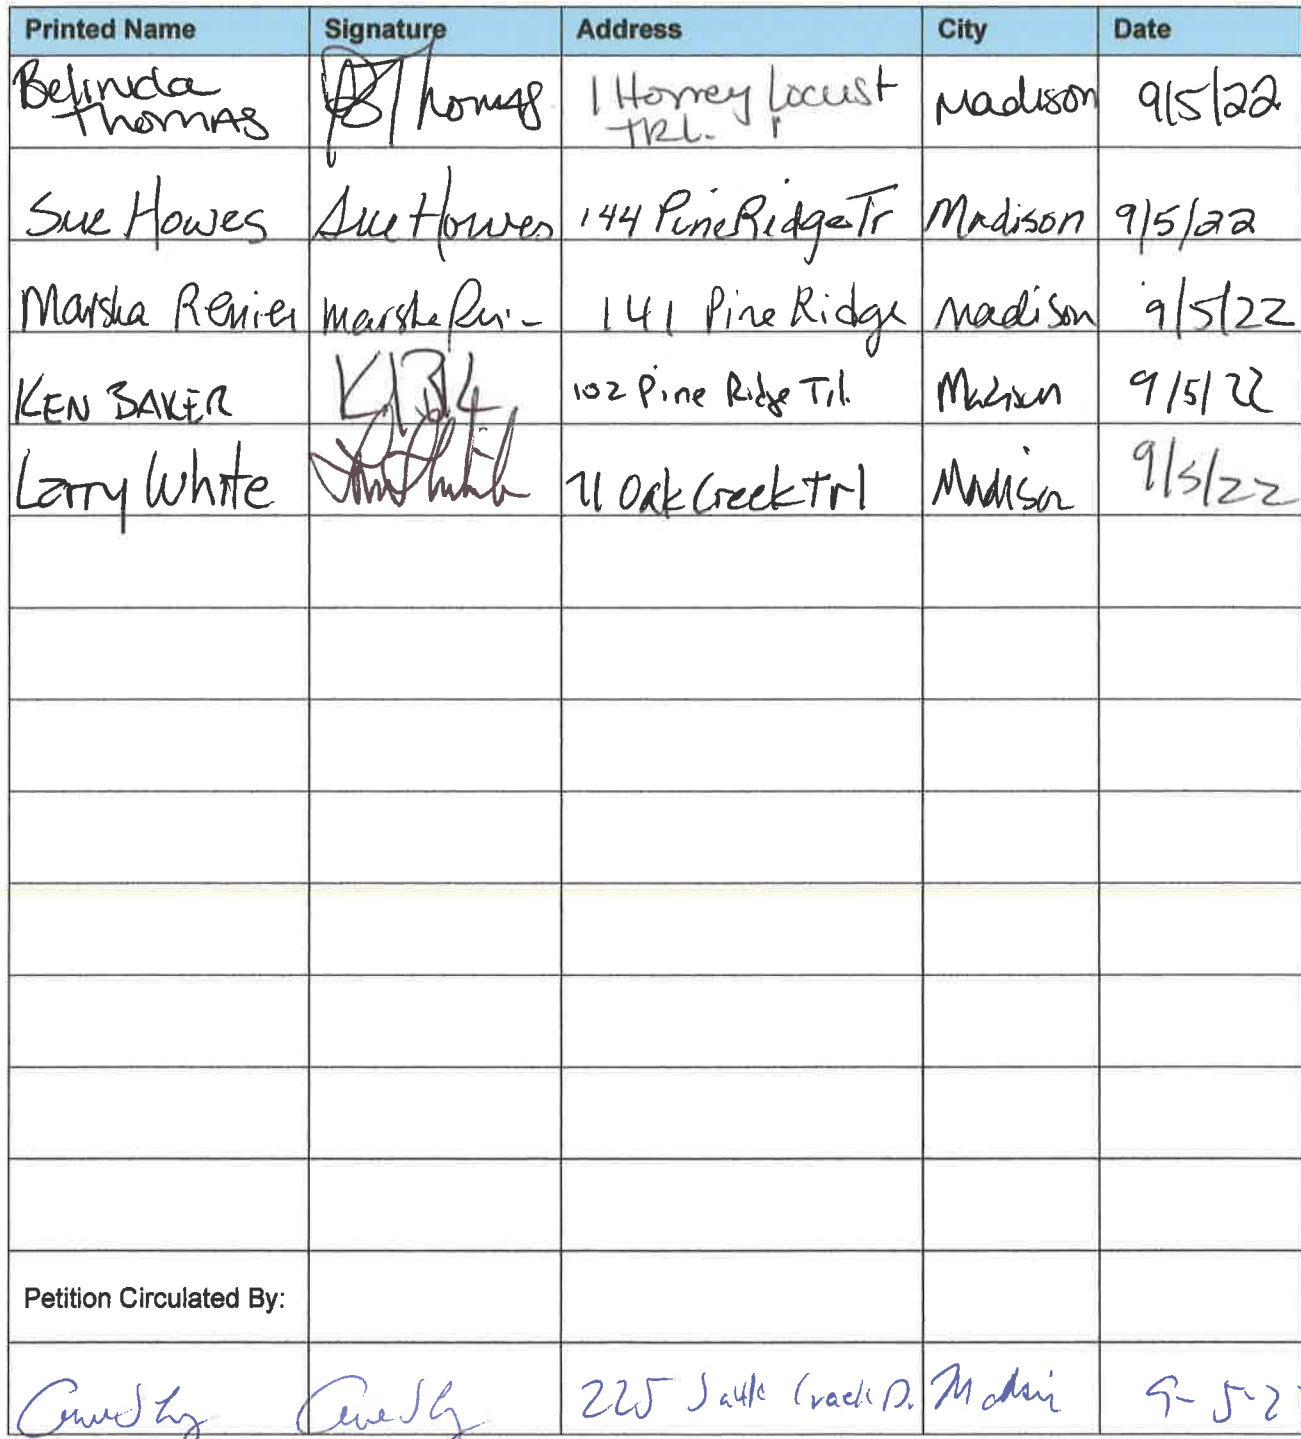 Printed Name Signature Address City Date
Belinda Thomas Thomas 1 Honey Locust TRL. Madison 9/5/22
Sue Howes Sue Howes 144 Pine Ridge Tr Madison 9/5/22
Marsha Renier Marsha 141 Pine Ridge Madison 9/5/22
KEN BAKER 102 Pine Ridge Trl. Madison 9/5/22
Larry White 71 Oak Creek Trl Madison 9/5/22
Petition Circulated By:
225 Sauk Creek D. Madison 9-5-2